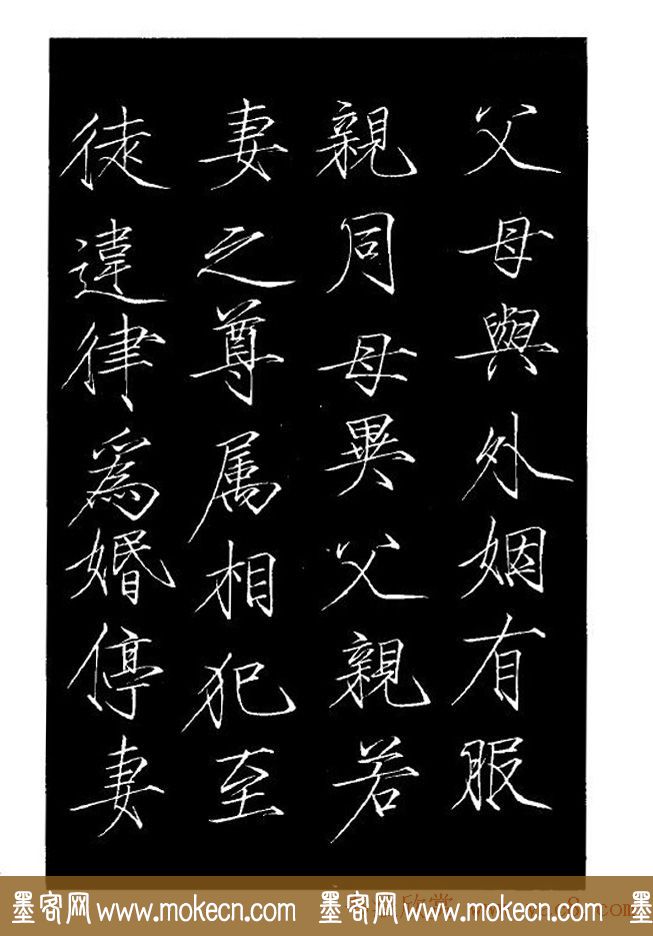 父母與外姻有服
親同母異父親若
妻之尊属相犯至
徒違律爲婚停妻
墨客网 www.mokecn.com 墨客网 www.mokecn.com 墨客